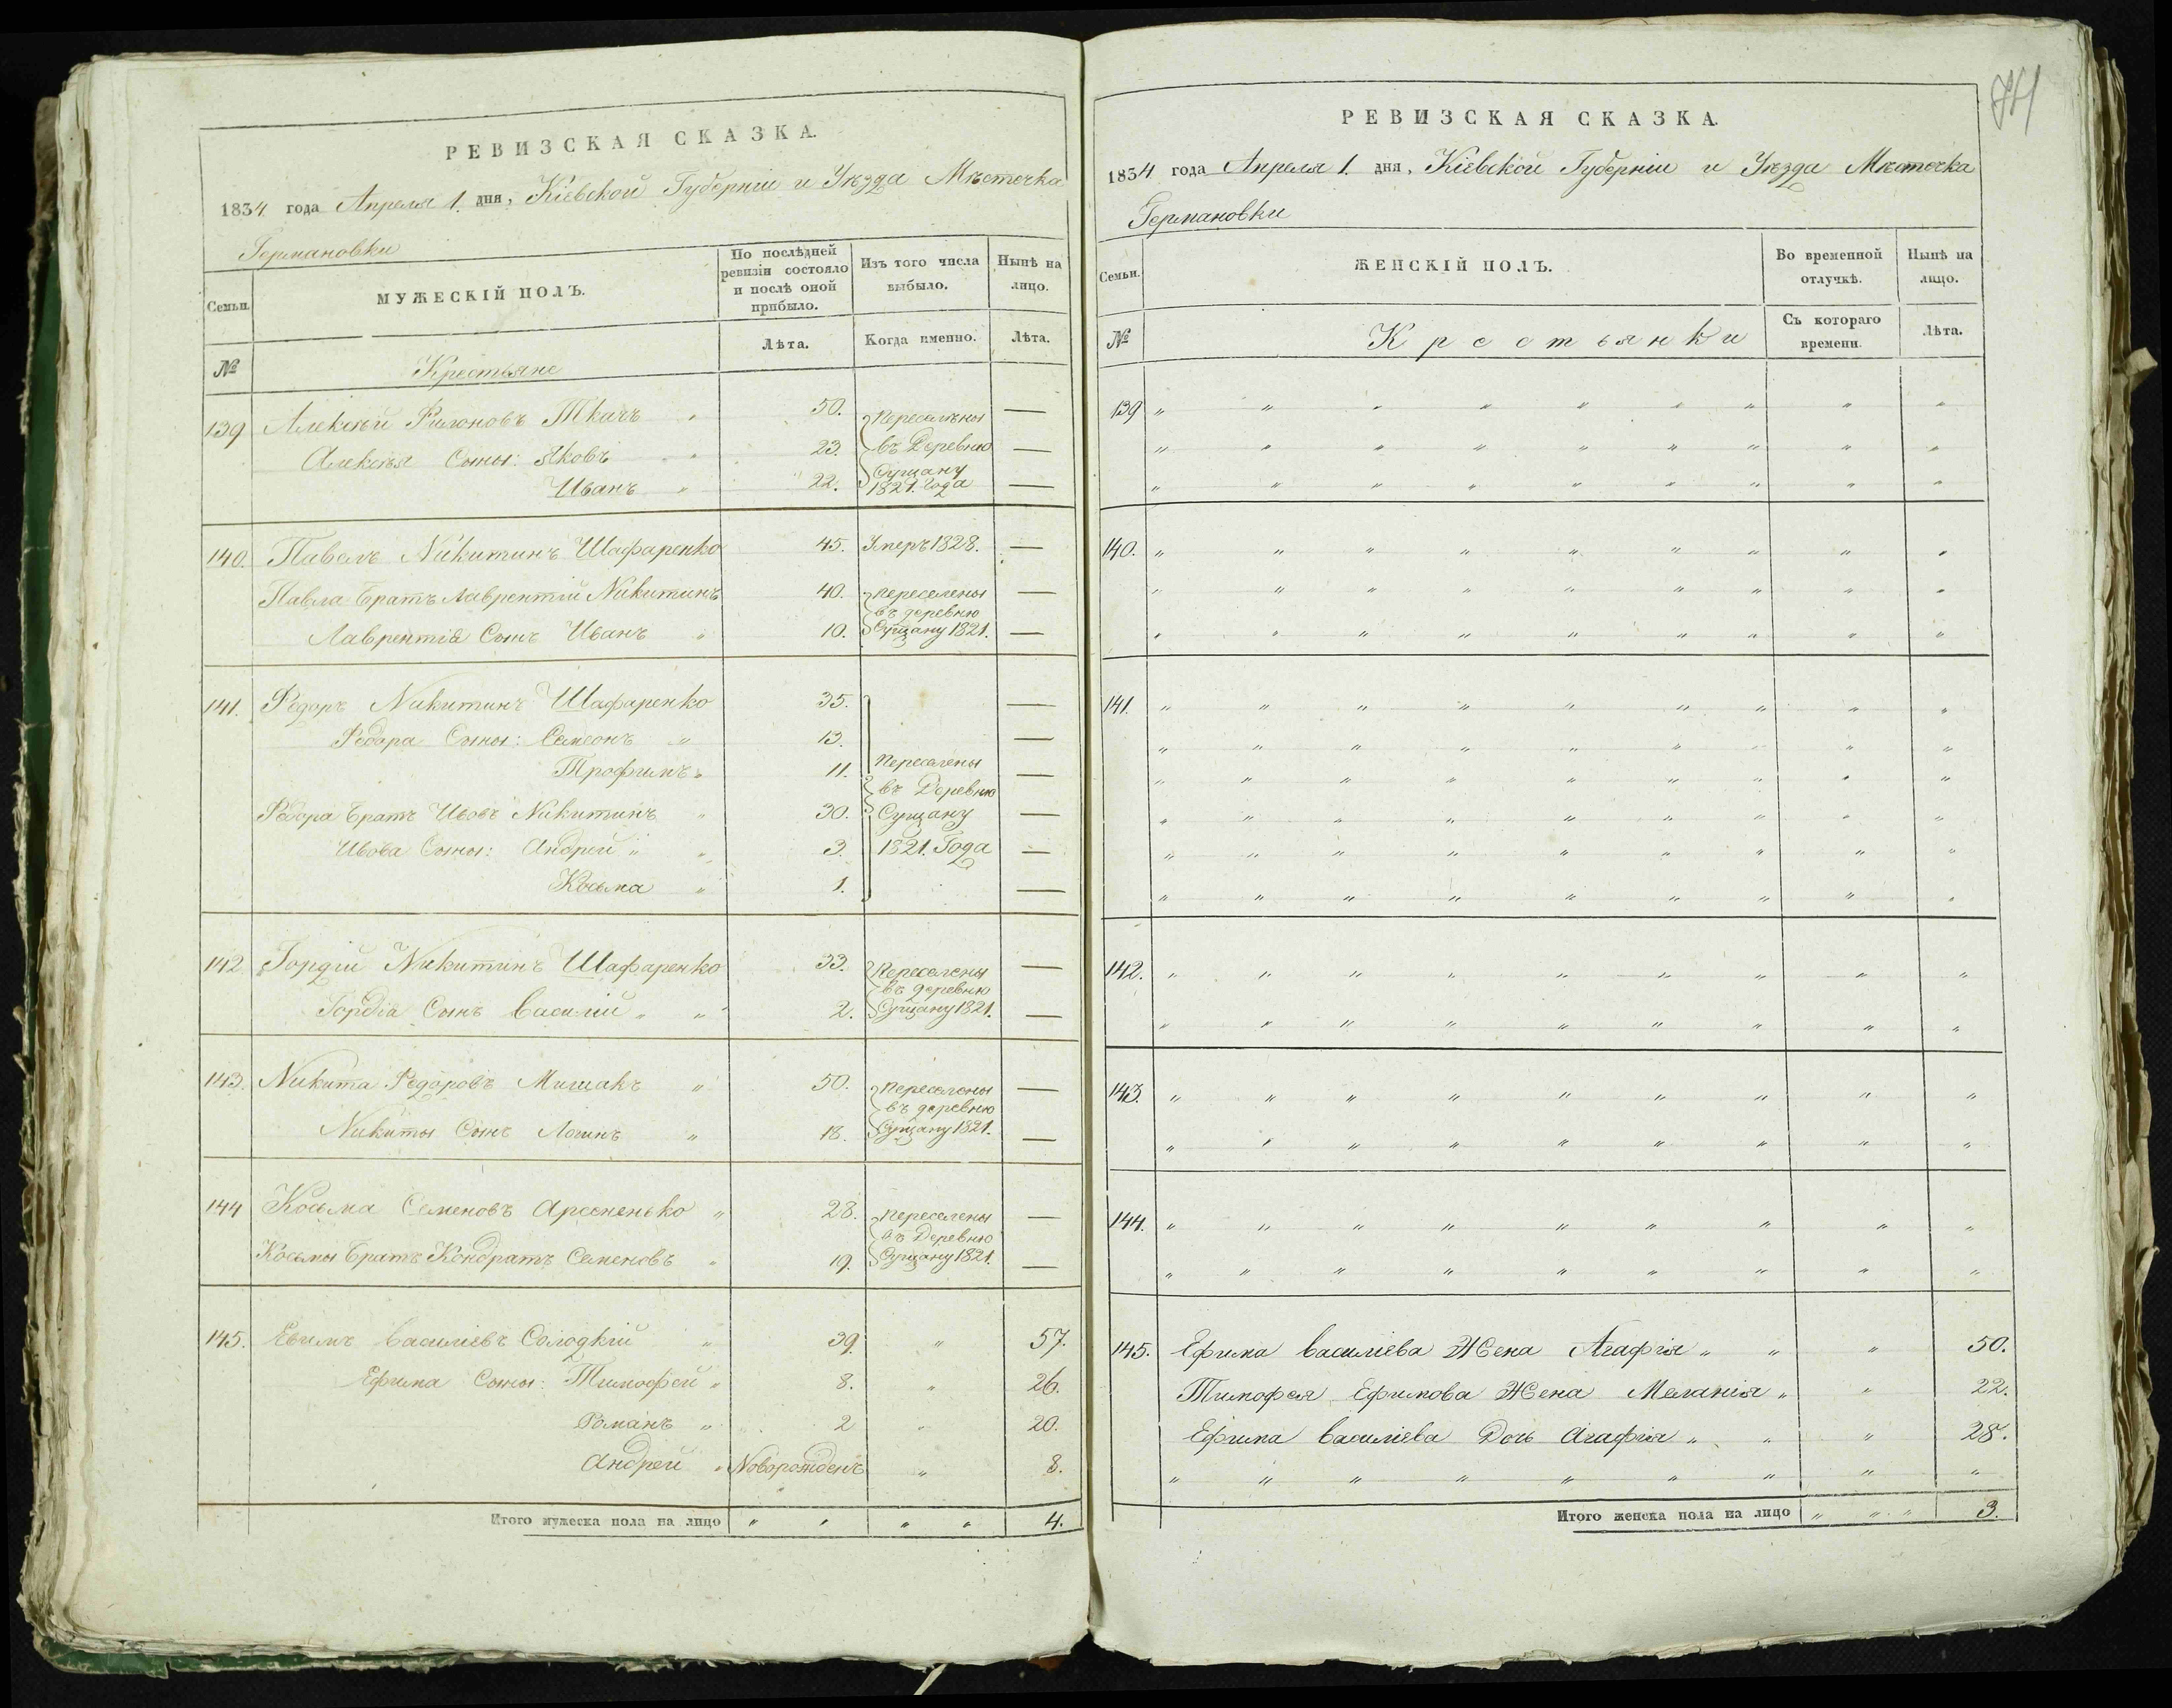 РЕВИЗСКАЯ СКАЗКА.
1834 года Апреля 1. дня, Кіевской Губерніи и Уѣзда Мѣстечка
Германовки
Семьи. МУЖЕСКІЙ ПОЛЪ. По послѣдней ревизіи состояло и послѣ оной прибыло. Изъ того числа выбыло. Нынѣ на лицо.
№ Крестьяне Лѣта. Когда именно. Лѣта.
139 Алексѣй Филоновъ Ткачъ „ 50. Переселѣны —
Алексѣя Сыны: Яковъ „ 23. въ Деревню —
Иванъ „ 22. Сущану 1821. года —
140. Павелъ Никитинъ Шафаренко 45. Умеръ 1828. —
Павла Братъ Лаврентій Никитинъ 40. переселены —
въ деревню
Лаврентія Сынъ Иванъ „ 10. Сущану 1821. —
141. Федоръ Никитинъ Шафаренко 35. —
Федора Сыны: Семеонъ „ 13. —
Трофимъ „ 11. переселены —
въ Деревню
Федора Братъ Ивовъ Никитинъ „ 30. Сущану —
Ивова Сыны: Андрей „ „ 3. 1821. Года —
Косьма „ 1. —
142 Гордій Никитинъ Шафаренко 33. Переселены —
въ деревню
Гордія Сынъ Василій „ „ 2. Сущану 1821. —
143. Никита Федоровъ Мишакъ „ 50. переселены —
въ деревню
Никиты Сынъ Логинъ „ 18. Сущану 1821. —
144 Косьма Семеновъ Арсененько „ 28. переселены —
въ Деревню
Косьмы Братъ Кондратъ Семеновъ „ 19. Сущану 1821. —
145. Евимъ Василіевъ Солодкій „ 39. „ 57.
Ефима Сыны: Тимофей „ 8. „ 26.
Романъ „ 2 „ 20.
Андрей „ Новорожденъ „ 8.
Итого мужеска пола на лицо „ „ „ „ 4.
РЕВИЗСКАЯ СКАЗКА.
1834 года Апреля 1. дня, Кіевской Губерніи и Уѣзда Мѣстечка
Германовки
Семьи. ЖЕНСКІЙ ПОЛЪ. Во временной отлучкѣ. Нынѣ на лицо.
№ Крестьянки Съ котораго времени. Лѣта.
139 „ „ „ „ „ „ „ „ „
„ „ „ „ „ „ „ „ „
„ „ „ „ „ „ „ „ „
140. „ „ „ „ „ „ „ „ „
„ „ „ „ „ „ „ „ „
„ „ „ „ „ „ „ „ „
141. „ „ „ „ „ „ „ „ „
„ „ „ „ „ „ „ „ „
„ „ „ „ „ „ „ „ „
„ „ „ „ „ „ „ „ „
„ „ „ „ „ „ „ „ „
„ „ „ „ „ „ „ „ „
142. „ „ „ „ „ „ „ „ „
„ „ „ „ „ „ „ „ „
143. „ „ „ „ „ „ „ „ „
„ „ „ „ „ „ „ „ „
144. „ „ „ „ „ „ „ „ „
„ „ „ „ „ „ „ „ „
145. Ефима Василіева Жена Агафія „ „ „ 50.
Тимофея Ефимова Жена Меланія „ „ 22.
Ефима Василіева Дочь Агафія „ „ „ 28.
„ „ „ „ „ „ „ „ „
Итого женска пола на лицо „ „ „ 3.